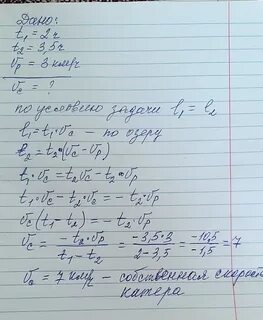 Дано:
t₁ = 2 ч
t₂ = 3,5 ч
vₚ = 3 км/ч
v_c = ?
по условию задачи l₁ = l₂
l₁ = t₁·v_c – по озеру
l₂ = t₂·(v_c − vₚ)
t₁·v_c = t₂v_c − t₂·vₚ
t₁·v_c − t₂·v_c = −t₂·vₚ
v_c(t₁ − t₂) = −t₂·vₚ
v_c = −t₂·vₚ / t₁ − t₂ = −3,5·3 / 2 − 3,5 = −10,5 / −1,5 = 7
v_c = 7 км/ч – собственная скорость
катера